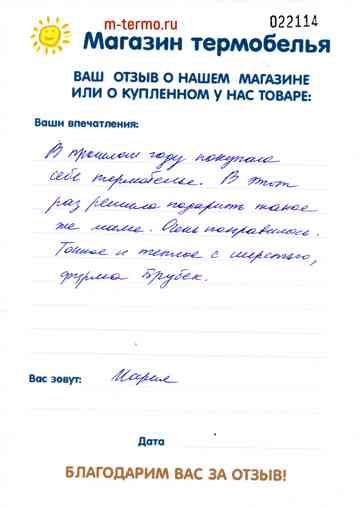 m-termo.ru
022114
Магазин термобелья
ВАШ ОТЗЫВ О НАШЕМ МАГАЗИНЕ
ИЛИ О КУПЛЕННОМ У НАС ТОВАРЕ:
Ваши впечатления:
В прошлом году покупала
себе термобелье. В этот
раз решила подарить такое
же маме. Очень понравилось.
Тонкое и теплое с шерстью,
фирма Брубек.
Вас зовут: Мария
Дата
БЛАГОДАРИМ ВАС ЗА ОТЗЫВ!